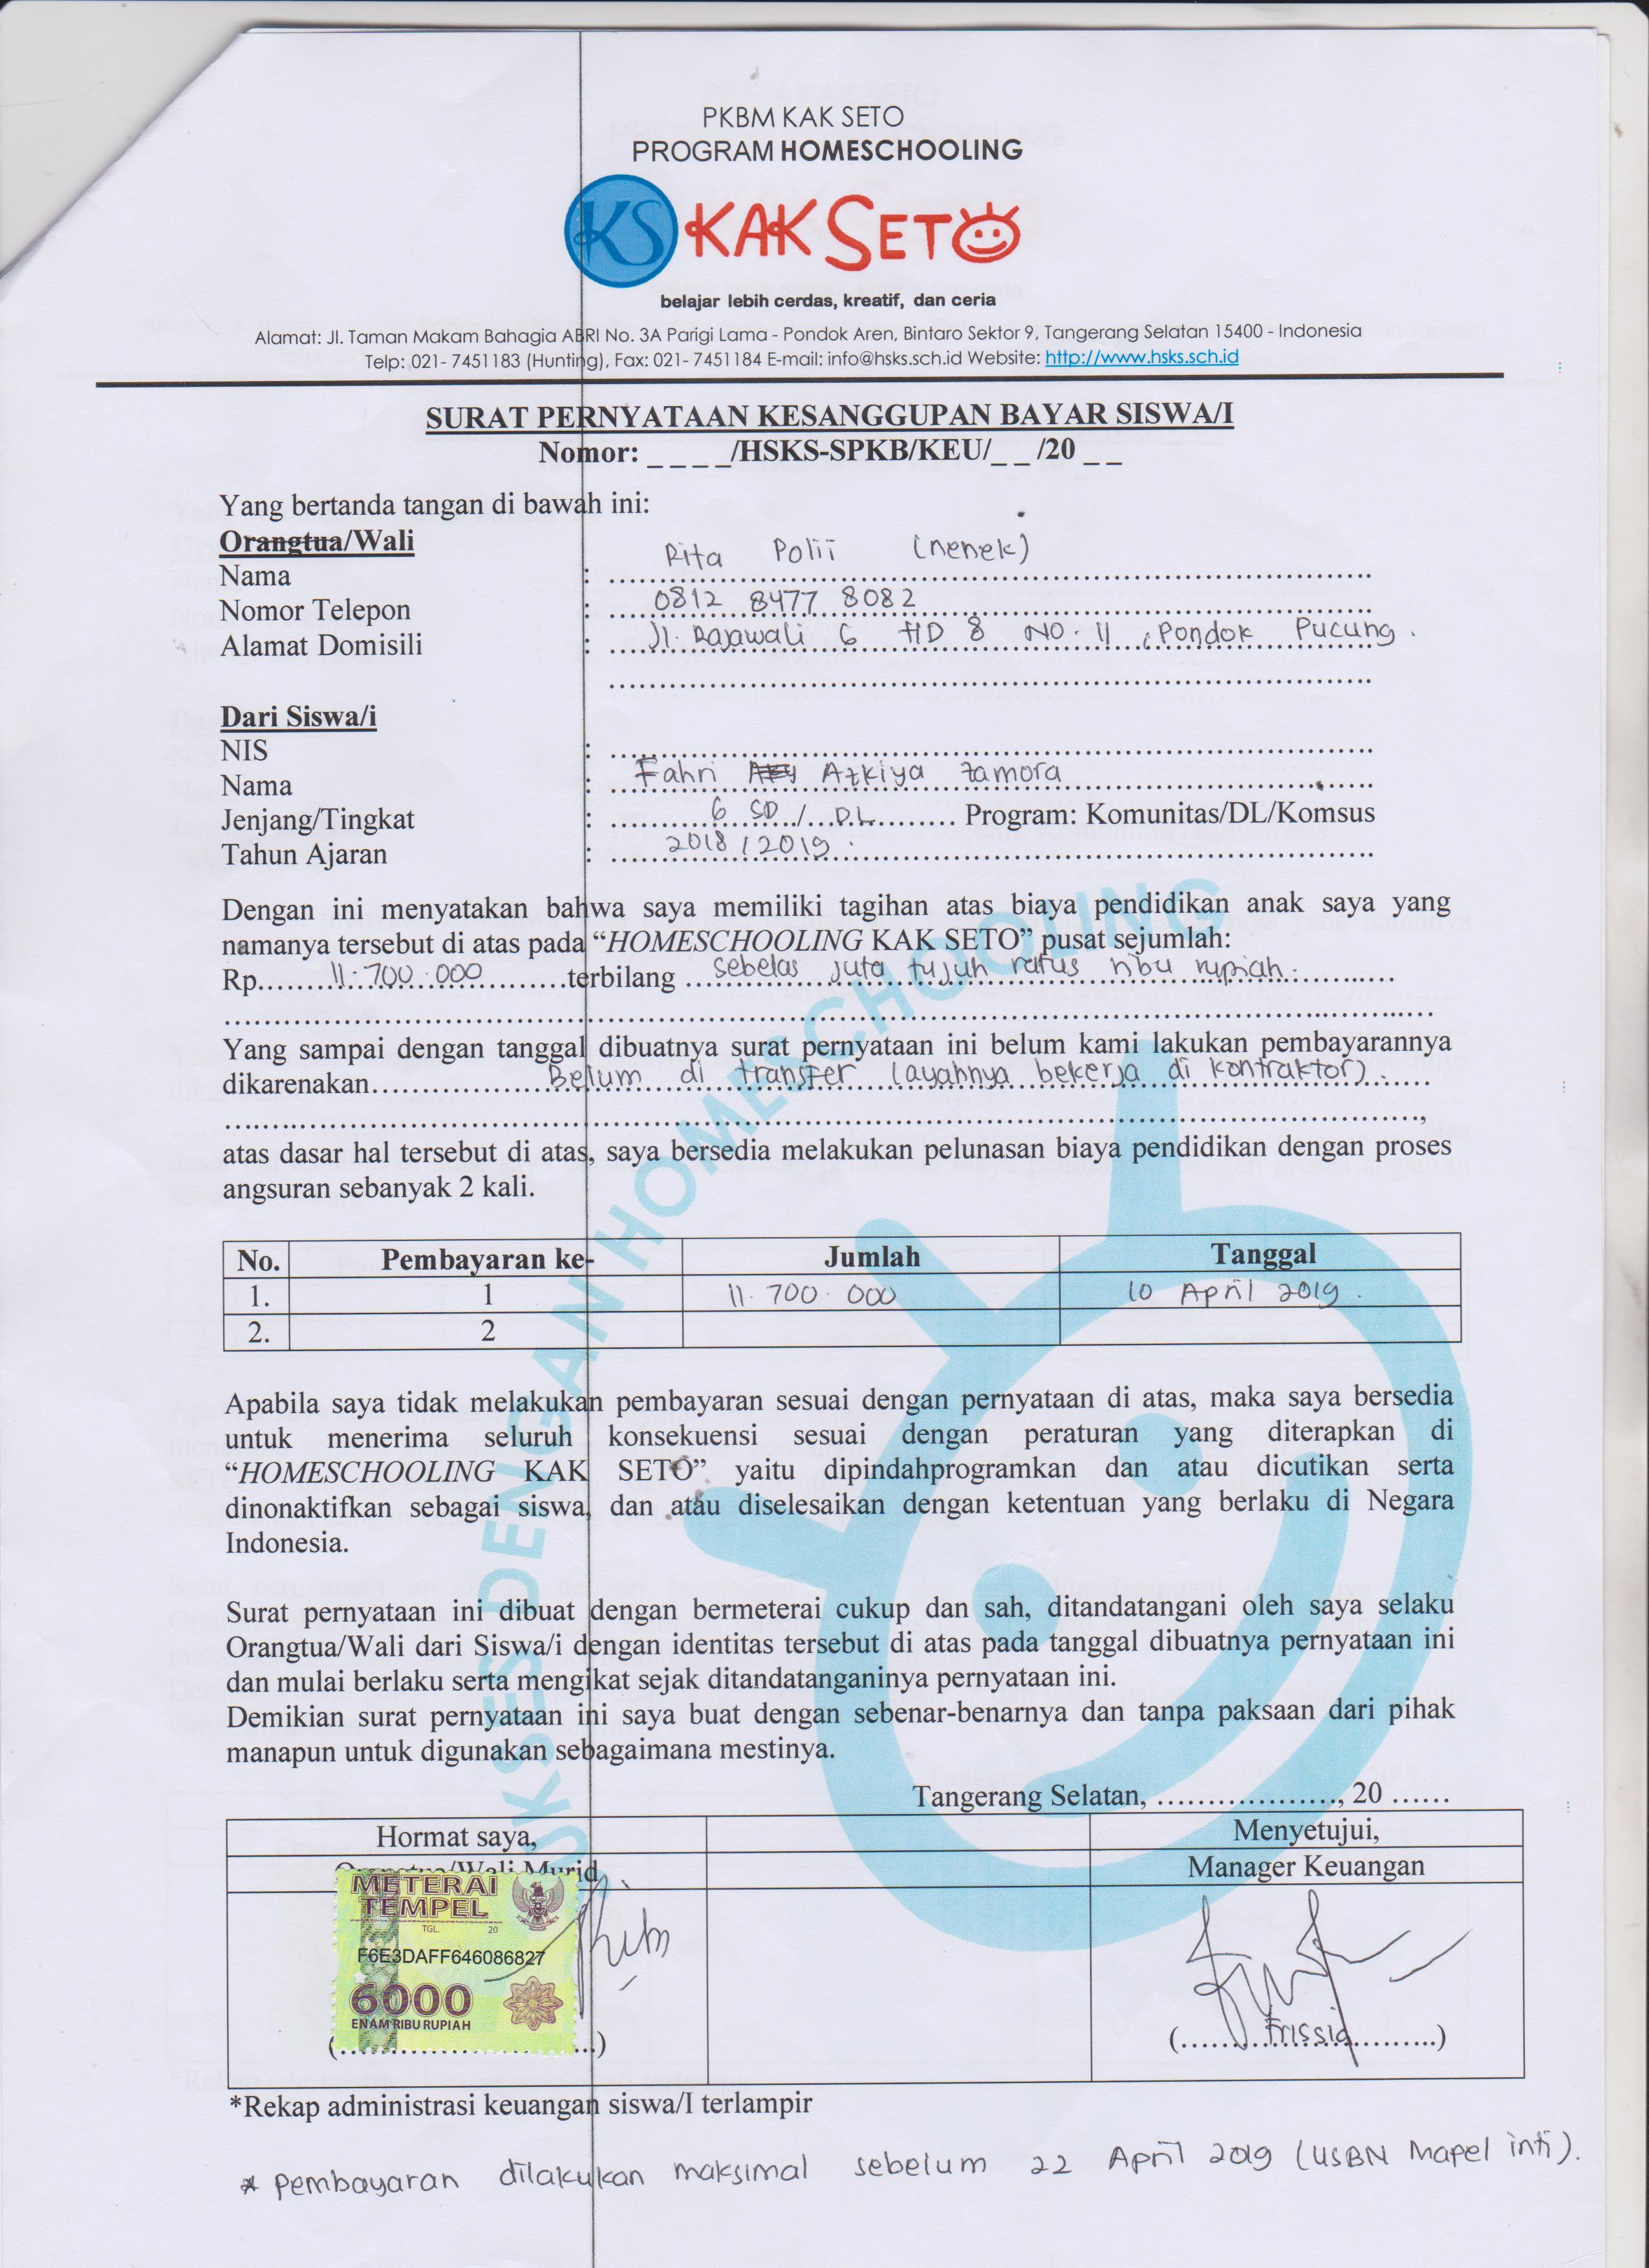 PKBM KAK SETO
PROGRAM HOMESCHOOLING
KS KAK SETO
belajar lebih cerdas, kreatif, dan ceria
Alamat: Jl. Taman Makam Bahagia ABRI No. 3A Parigi Lama - Pondok Aren, Bintaro Sektor 9, Tangerang Selatan 15400 - Indonesia
Telp: 021- 7451183 (Hunting), Fax: 021- 7451184 E-mail: info@hsks.sch.id Website: http://www.hsks.sch.id
SURAT PERNYATAAN KESANGGUPAN BAYAR SISWA/I
Nomor: _ _ _ _/HSKS-SPKB/KEU/_ _ /20 _ _
Yang bertanda tangan di bawah ini:
Orangtua/Wali
Nama : Rita Polii (nenek)
Nomor Telepon : 0812 8477 8082
Alamat Domisili : Jl. Rajawali 6 HD 8 NO. 11, Pondok Pucung.
Dari Siswa/i
NIS :
Nama : Fahri Azkiya Zamora
Jenjang/Tingkat : 6 SD / DL Program: Komunitas/DL/Komsus
Tahun Ajaran : 2018 / 2019.
Dengan ini menyatakan bahwa saya memiliki tagihan atas biaya pendidikan anak saya yang
namanya tersebut di atas pada “HOMESCHOOLING KAK SETO” pusat sejumlah:
Rp. 11.700.000 terbilang sebelas juta tujuh ratus ribu rupiah.
Yang sampai dengan tanggal dibuatnya surat pernyataan ini belum kami lakukan pembayarannya
dikarenakan Belum di transfer (ayahnya bekerja di kontraktor).
,
atas dasar hal tersebut di atas, saya bersedia melakukan pelunasan biaya pendidikan dengan proses
angsuran sebanyak 2 kali.
No. Pembayaran ke- Jumlah Tanggal
1. 1 11.700.000 10 April 2019.
2. 2
Apabila saya tidak melakukan pembayaran sesuai dengan pernyataan di atas, maka saya bersedia
untuk menerima seluruh konsekuensi sesuai dengan peraturan yang diterapkan di
“HOMESCHOOLING KAK SETO” yaitu dipindahprogramkan dan atau dicutikan serta
dinonaktifkan sebagai siswa, dan atau diselesaikan dengan ketentuan yang berlaku di Negara
Indonesia.
Surat pernyataan ini dibuat dengan bermeterai cukup dan sah, ditandatangani oleh saya selaku
Orangtua/Wali dari Siswa/i dengan identitas tersebut di atas pada tanggal dibuatnya pernyataan ini
dan mulai berlaku serta mengikat sejak ditandatanganinya pernyataan ini.
Demikian surat pernyataan ini saya buat dengan sebenar-benarnya dan tanpa paksaan dari pihak
manapun untuk digunakan sebagaimana mestinya.
Tangerang Selatan, ...................., 20 ......
Hormat saya, Menyetujui,
Orangtua/Wali Murid Manager Keuangan
METERAI
TEMPEL
TGL. 20
F6E3DAFF646086827
6000
ENAM RIBU RUPIAH
(....................) (Frissia)
*Rekap administrasi keuangan siswa/I terlampir
* Pembayaran dilakukan maksimal sebelum 22 April 2019 (USBN Mapel inti).
UKSES DENGAN HOMESCHOOLING